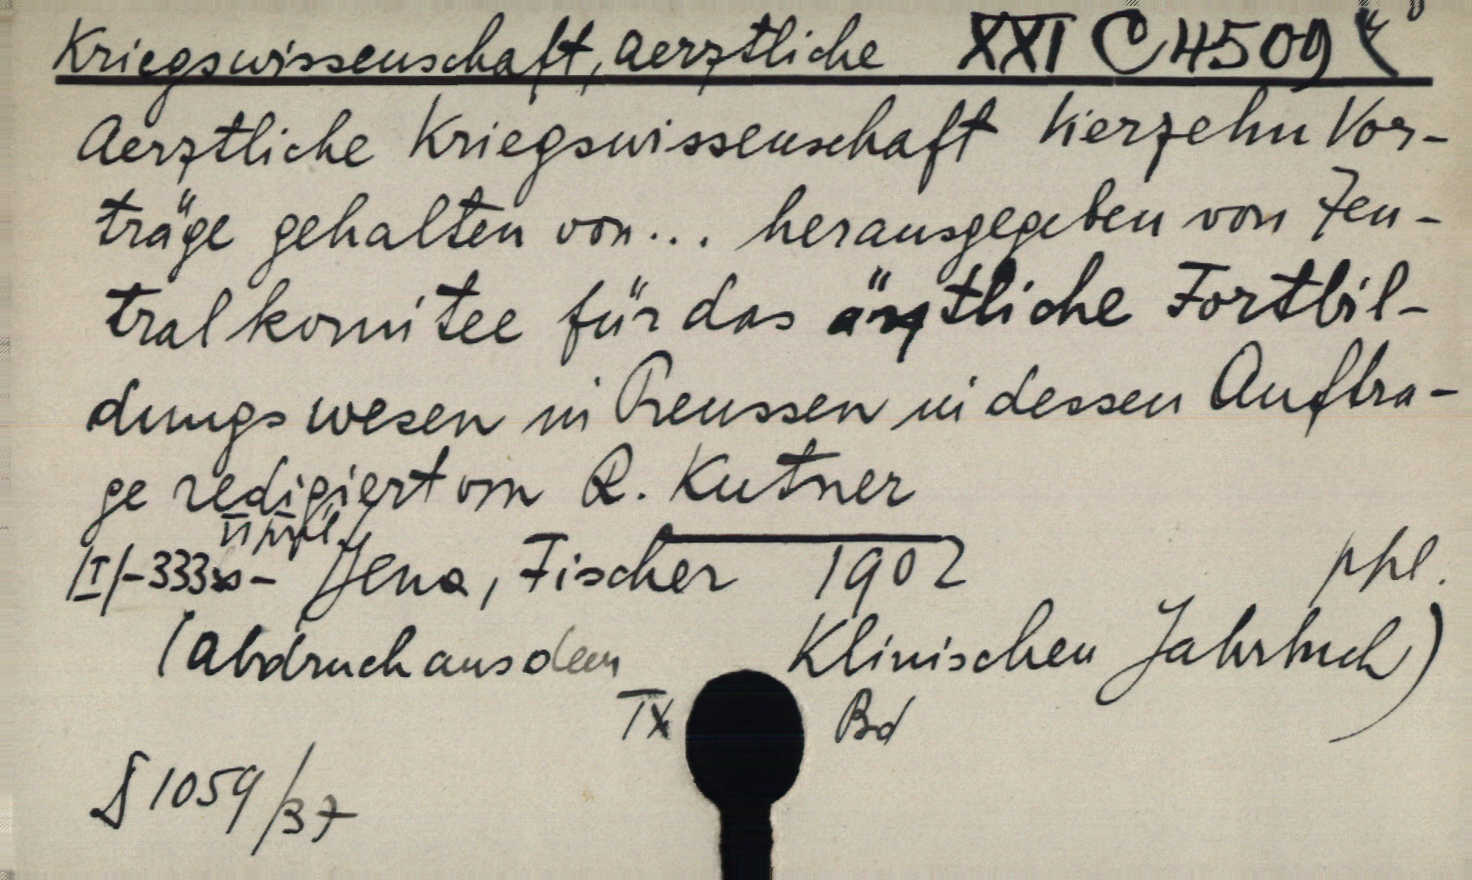 Kriegswissenschaft, aerztliche XXI C 4509
Aerztliche Kriegswissenschaft Vierzehn Vor-
träge gehalten von... herausgegeben von Zen-
tralkomitee für das ärztliche Fortbil-
dungswesen in Preussen in dessen Auftra-
ge redigiert von R. Kutner
/I/-333 s- Jena, Fischer 1902 ppl.
(Abdruck aus dem Klinischen Jahrbuch)
IX Bd
1059/37